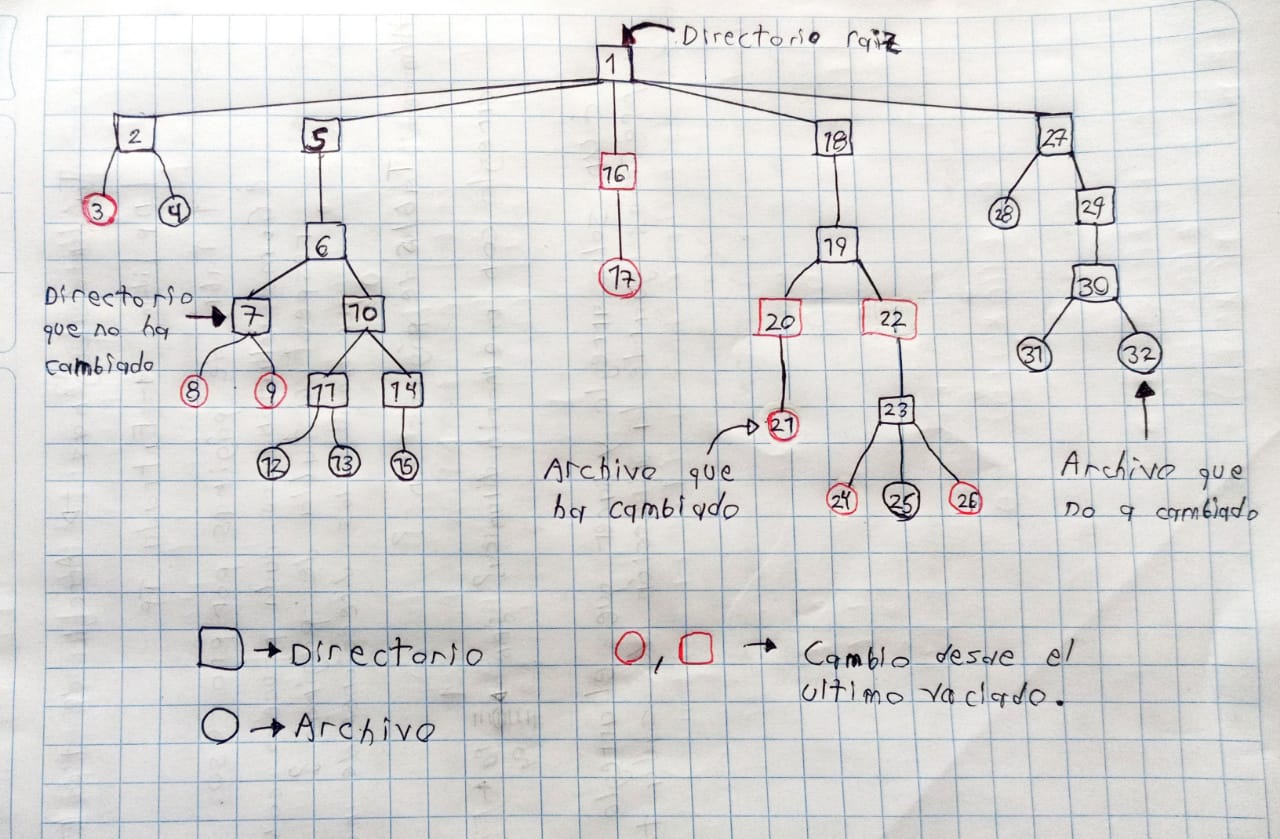 Directorio raiz
1
2
5
16
18
27
3
4
6
17
19
28
29
Directorio
que no ha
cambiado
7
10
20
22
30
8
9
11
14
21
23
31
32
12
13
15
Archivo que
ha cambiado
24
25
26
Archivo que
no a cambiado
→ Directorio
, → Cambio desde el
ultimo vaciado.
→ Archivo